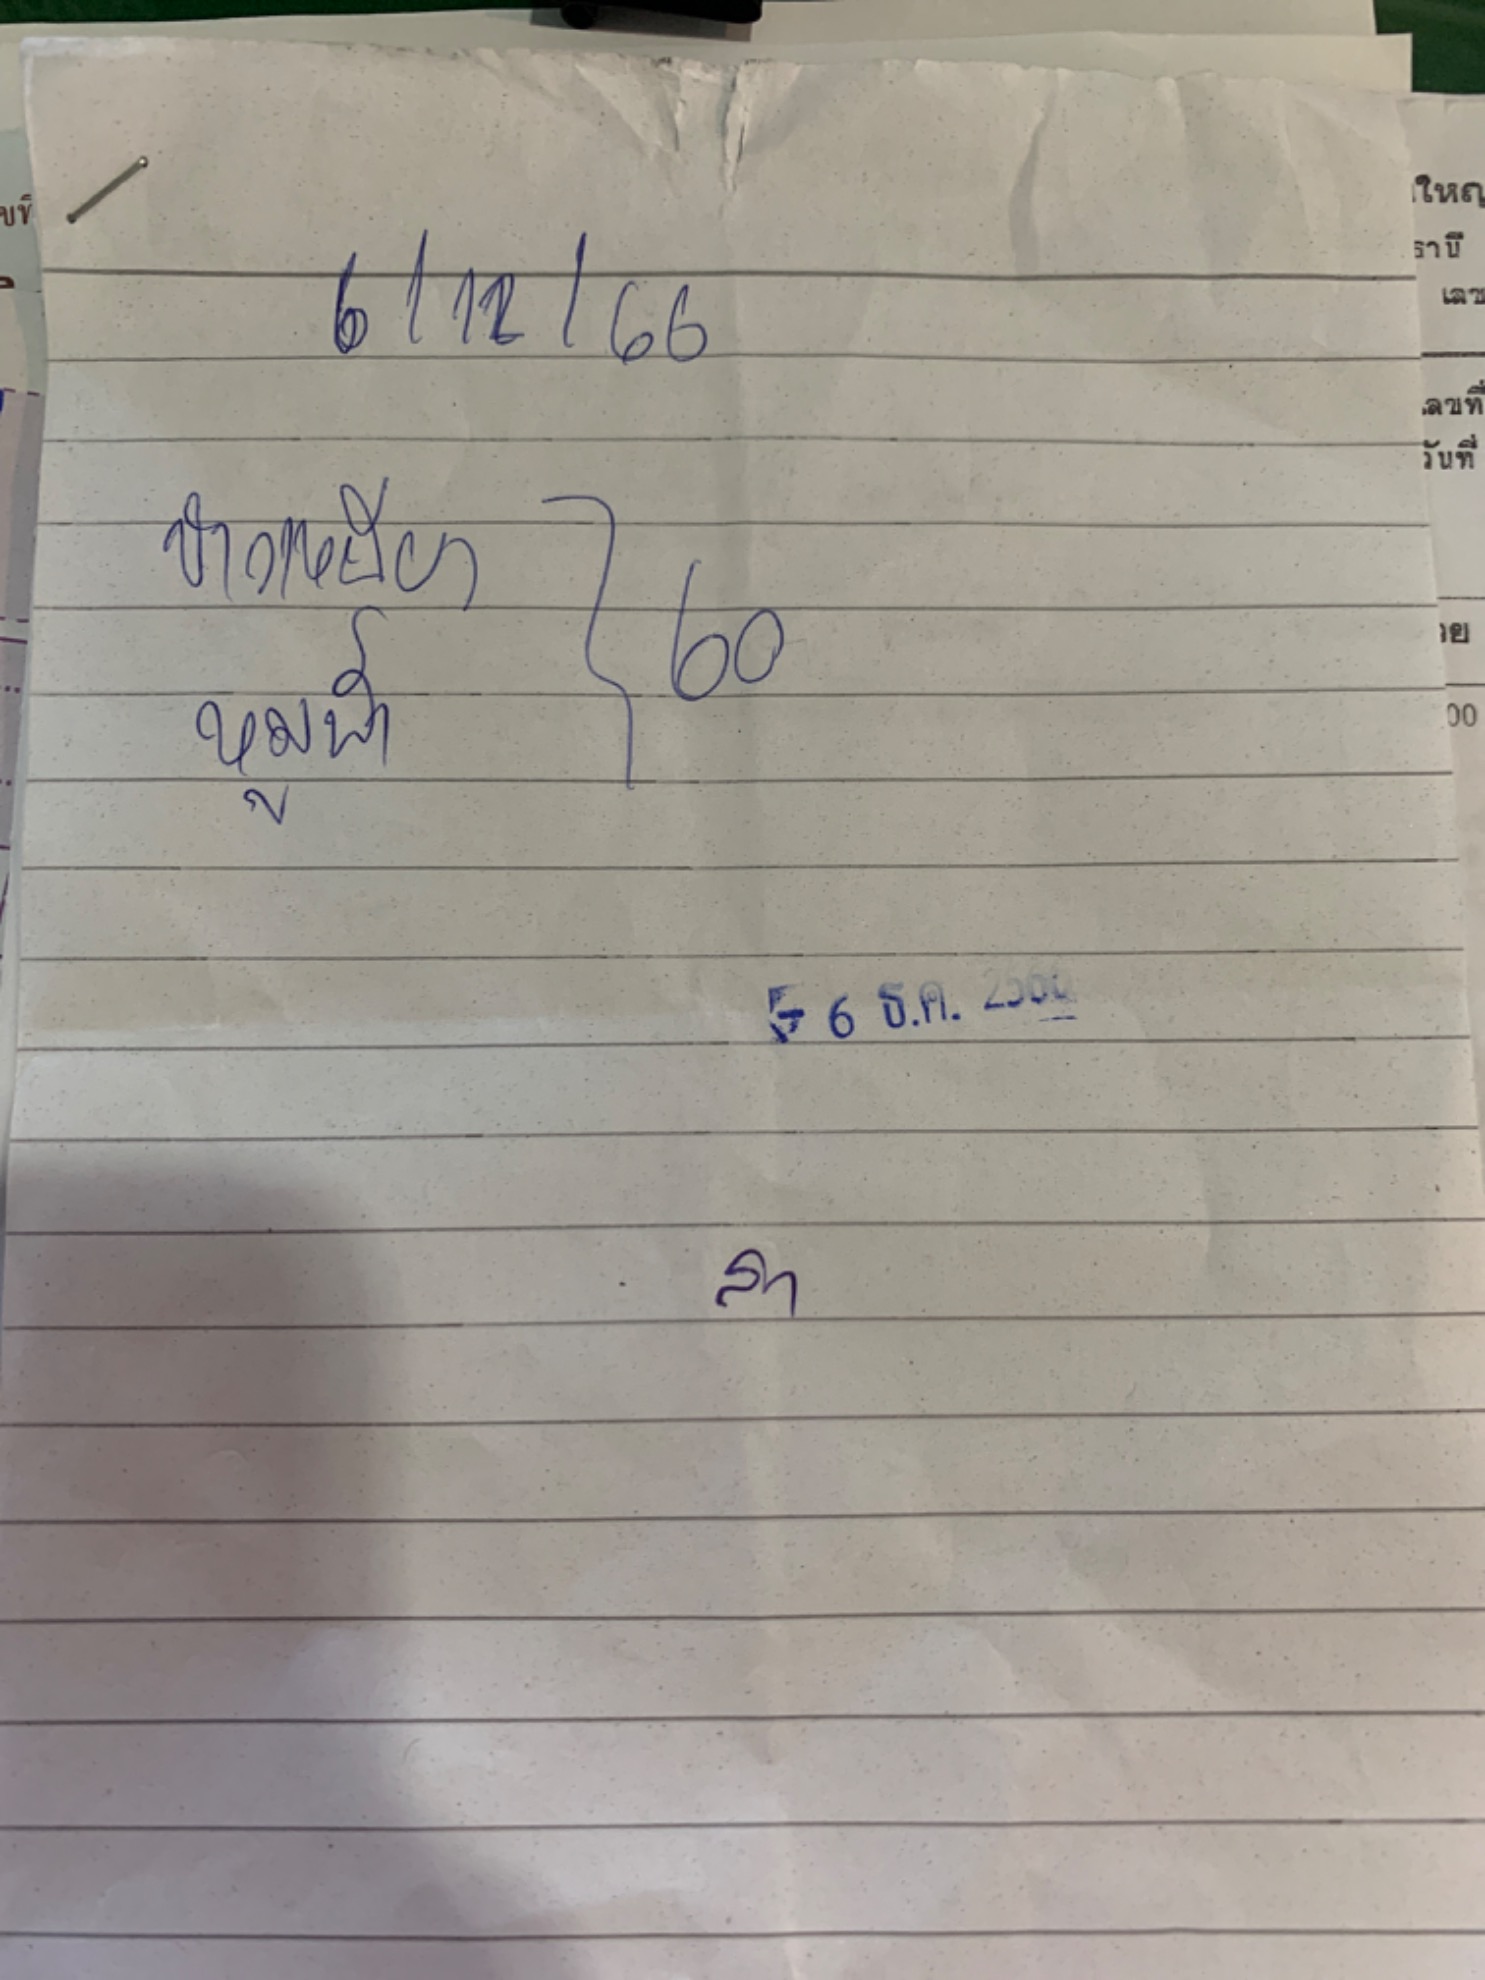 6/12/66
ข้าวเหนียว
หมูปิ้ง
60
6 ธ.ค. 2566
ขที่
ใหญ
ธานี
เลข
ลขที่
วันที่
วย
00